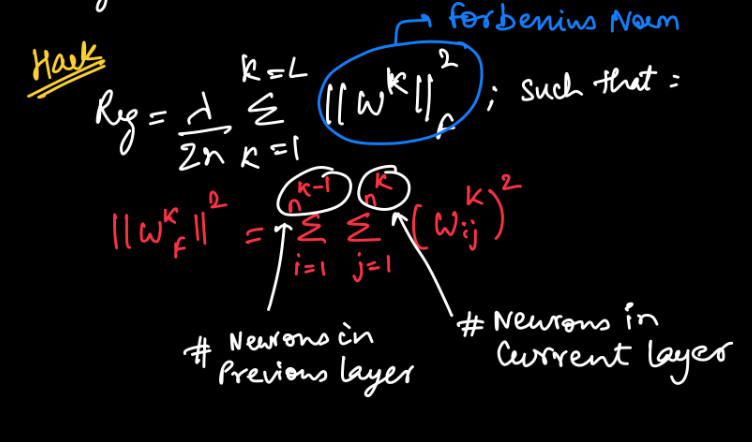 Forbenius Norm
Hack
Reg = λ/2n Σ_{K=1}^{K=L} ||w^K||_F^2 ; such that :
||w^K_F||^2 = Σ_{i=1}^{n^{K-1}} Σ_{j=1}^{n^K} (w_{ij}^K)^2
# Neurons in
Previous layer
# Neurons in
Current layer